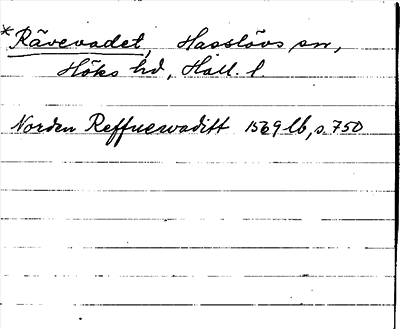 *Rävevadet, Hasslövs sn,
Höks hd, Hall. l
Norden Reffuewaditt 1569 lb, s. 750